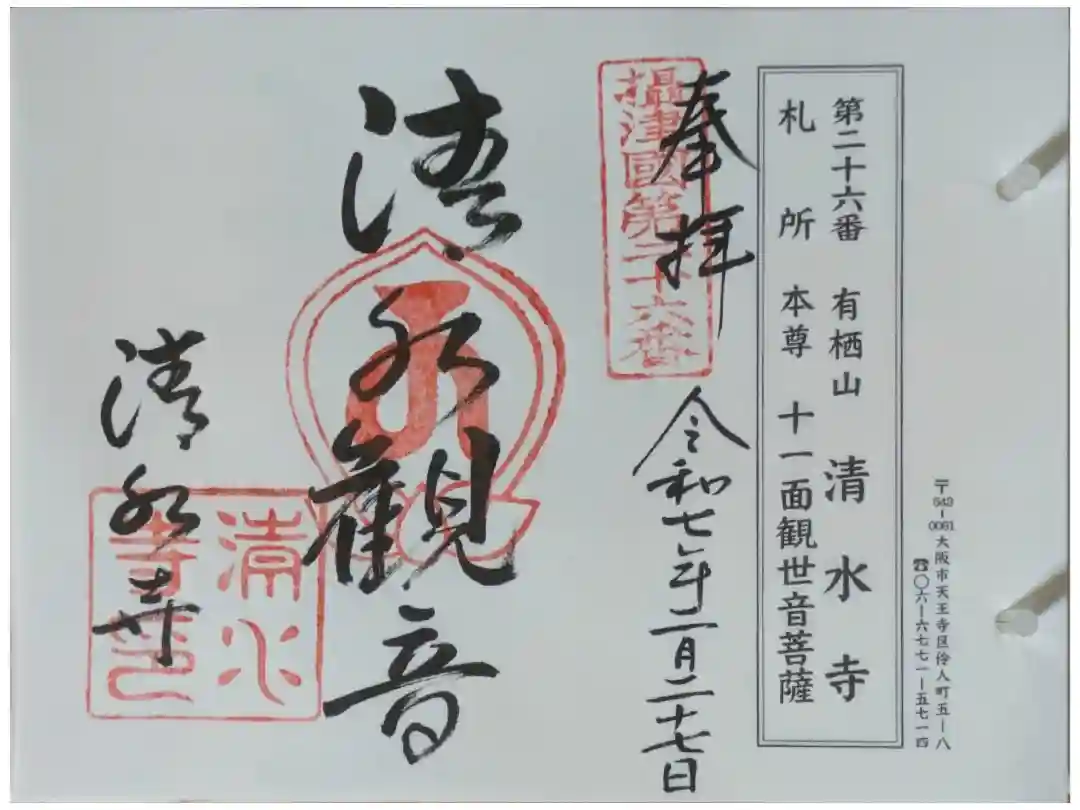 〒543-0061大阪市天王寺区伶人町五ー八
☎〇六ー六七七一ー五七一四
第二十六番 有栖山 清水寺
札所 本尊 十一面観世音菩薩
奉拝
攝津國第二十六番
令和七年一月二十七日
清水観音
清水寺
清水
寺印